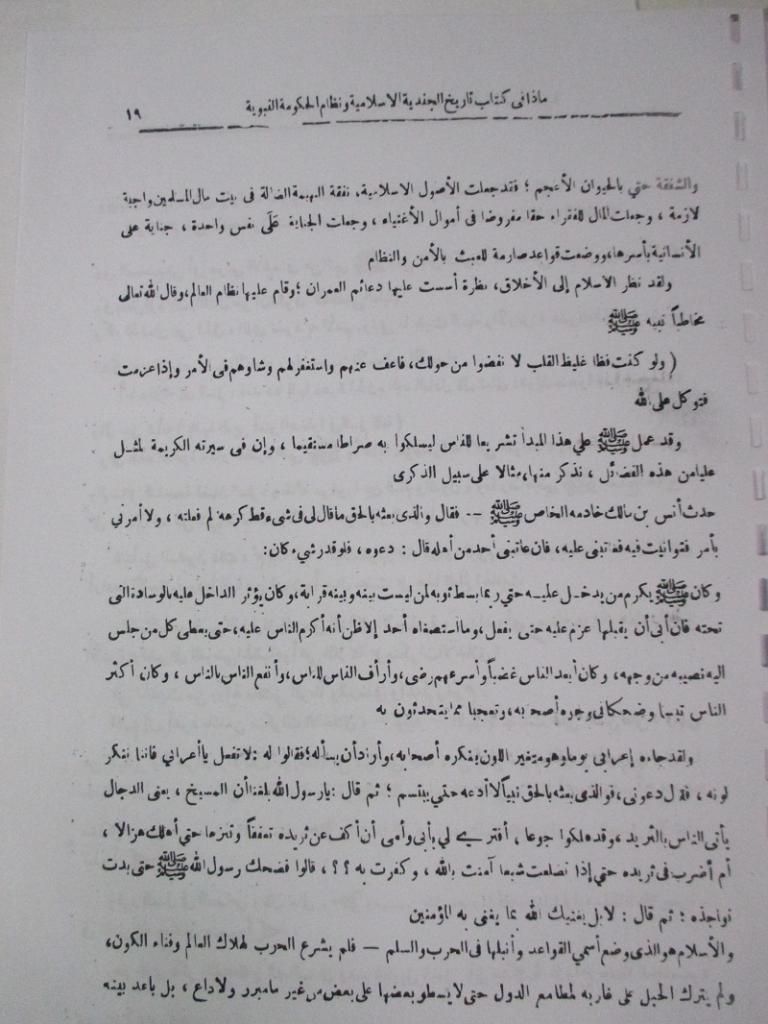 ماذا فى كتاب تاريخ الجندية الاسلامية ونظام الحكومة النبوية ١٩
والشفقة حتي بالحيوان الأعجم ؛ فقد جعلت الأصول الاسلامية، نفقة البهيمة الضالة فى بيت مال المسلمين واجبة
لازمة ، وجعلت المال للفقراء حقا مفروضا فى أموال الأغنياء ، وجعلت الجناية عَلَى نفس واحدة ، جناية على
الأنسانية بأسرها، ووضعت قواعد صارمة للعبث بالأمن والنظام
ولقد نظر الاسلام إلى الأخلاق، نظرة أسست عليها دعائم العمران ؛ وقام عليها نظام العالم، وقال الله تعالى
مخاطباً نبيه ﷺ
( ولو كنت فظا غليظ القلب لا نفضوا من حولك، فاعف عنهم واستغفر لهم وشاوهم فى الأمر وإذا عزمت
فتوكل على الله
وقد عمل ﷺ علي هذا المبدأ تشريعا للناس ليسلكوا به صراطا مستقيما ، وإن فى سيرته الكريمة لمثل
عليا من هذه الفضائل ، نذكر منها، مثالا على سبيل الذكرى
حدث أنس بن مالك خادمه الخاص ﷺ -- فقال والذى بعثه بالحق ما قال لى فى شىء قط كرهه لم فعلته ، ولا أمرني
بأمر فتوانيت فيه فعاتبنى عليه، فان عاتبنى أحد من أهله قال : دعوه ، فلو قدر شيء كان:
وكان ﷺ يكرم من يدخل عليه حتي ربما بسط ثوبه لمن ليست بينه وبينه قرابة، وكان يؤثر الداخل عليه بالوسادة التى
تحته فان أبى أن يقبلها عزم عليه حتى يفعل، وما استصفاه أحد إلا ظن أنه أكرم الناس عليه، حتى يعطى كل من جلس
اليه نصيبه من وجهه، وكان أبعد الناس غضباً وأسرعهم رضى، وأرأف الناس للناس، وأنفع الناس بالناس ، وكان أكثر
الناس تبسما وضحكا فى وجوه أصحابه، وتعجبا مما يتحدثون به
ولقد جاءه إعرابى يوما وهو متغير اللون ينكره أصحابه، وأراد أن يسأله؛ فقالوا له : لا تفعل يا أعرابي فاننا ننكر
لونه ، فقال دعونى، فو الذى بعثه بالحق نبياً لا أدعه حتي يبتسم ؛ ثم قال : يارسول الله بلغنا أن المسيخ ، يعنى الدجال
يأتى الناس بالثريد ، وقد هلكوا جوعا ، أفترى لي بأبى وأمى أن أكف عن ثريده تعففاً وتنزها حتي أهلك هزالا ،
أم أضرب فى ثريده حتي إذا تضلعت شبعا آمنت بالله ، وكفرت به ؟ ؟ ، قالوا فضحك رسول الله ﷺ حتى بدت
نواجذه ؛ ثم قال : لا بل يغنيك الله بما يغنى به المؤمنين
والأسلام هو الذى وضع أسمي القواعد وأنبلها فى الحرب والسلم — فلم يشرع الحرب لهلاك العالم وفناء الكون،
ولم يترك الحبل على غاربه لمطامع الدول حتى لا يسطو بعضها على بعض من غير ما مبرر ولا داع ، بل باعد بينه